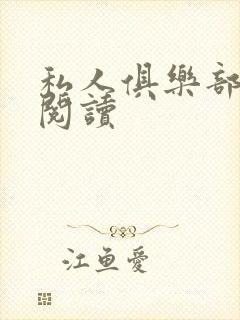 私人俱樂部
閱讀
江魚愛